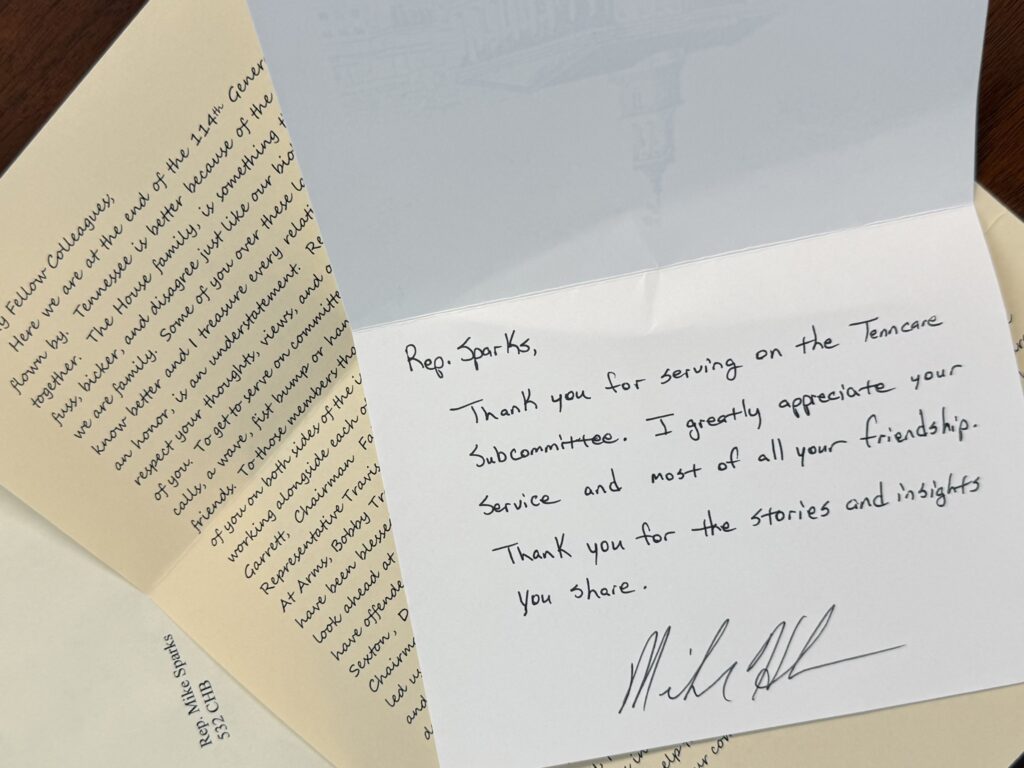 Fellow Colleagues,
Here we are at the end of the 114th Gener
flown by. Tennessee is better because of the
together. The House family, is something t
fuss, bicker, and disagree just like our bio
we are family. Some of you over these lo
know better and I treasure every relati
an honor, is an understatement. Re
respect your thoughts, views, and o
of you. To get to serve on committe
calls, a wave, fist bump or han
friends. To those members tho
of you on both sides of the
working alongside each o
Garrett, Chairman Fa
Representative Travis
At Arms, Bobby Tr
have been blesse
look ahead at
have offende
Sexton, D
Chairm
led us
and
Rep. Mike Sparks
532 CHB
Rep. Sparks,
Thank you for serving on the Tenncare
Subcommittee. I greatly appreciate your
service and most of all your friendship.
Thank you for the stories and insights
you share.
Mike